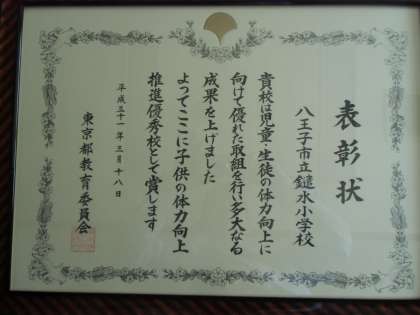 表彰状
八王子市立鑓水小学校
貴校は児童・生徒の体力向上に
向けて優れた取組を行い多大なる
成果を上げました
よってここに子供の体力向上
推進優秀校として賞します
平成三十一年三月十八日
東京都教育委員会